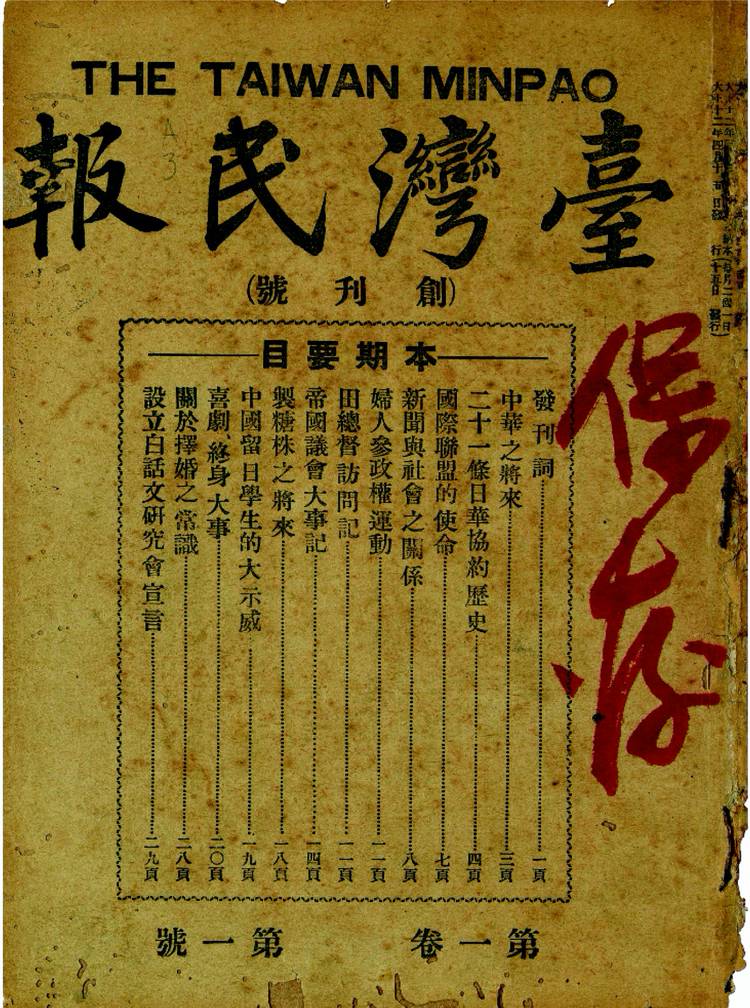 THE TAIWAN MINPAO
臺灣民報
(創刊號)
本期要目
發刊詞 一頁
中華之將來 三頁
二十一條日華協約歷史 四頁
國際聯盟的使命 七頁
新聞與社會之關係 八頁
婦人參政權運動 一一頁
田總督訪問記 一一頁
帝國議會大事記 一四頁
製糖株之將來 一八頁
中國留日學生的大示威 一九頁
喜劇、終身大事 二〇頁
關於擇婚之常識 二八頁
設立白話文研究會宣言 二九頁
第一卷 第一號
保存
3